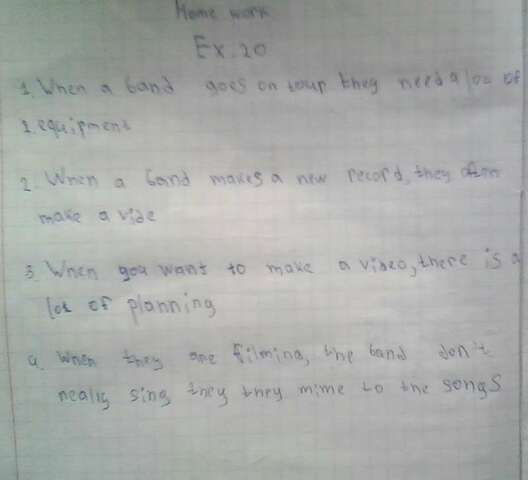 Home work
Ex. 20
1. When a band goes on tour they need a lot of
1. equipment
2. When a band makes a new record, they often
make a vide
3. When you want to make a video, there is a
lot of planning
4. When they are filming, the band don't
really sing, they they mime to the songs